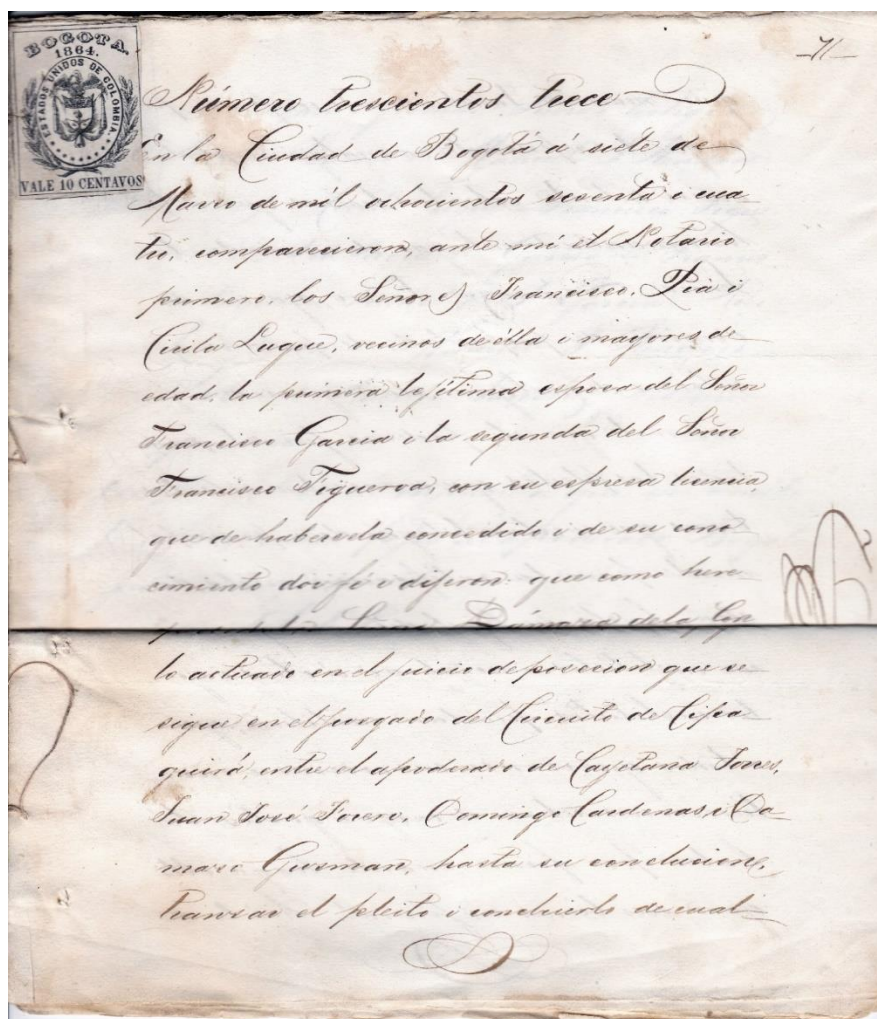 BOGOTA.
1864.
ESTADOS UNIDOS DE COLOMBIA.
VALE 10 CENTAVOS
71
Número trescientos trece
En la Ciudad de Bogotá á siete de
Marzo de mil ochocientos sesenta i cua-
tro, comparecieron, ante mí el Notario
primero, los Señores Francisco, Pia i
Cirila Luque, vecinos de élla i mayores de
edad, la primera lejítima esposa del Señor
Francisco Garcia i la segunda del Señor
Francisco Figueroa, con su espresa licencia,
que de habersela concedido i de su cono
cimiento doi fé i dijeron: que como here
Dámaza de la Con
lo actuado en el juicio de posecion que se
sigue en el juzgado del Circuito de Cipa-
quirá, entre el apoderado de Cayetana Torres,
Juan José Forero, Domingo Cardenas, i Da-
maso Gusman, hasta su conclucion,
transar el pleito i concluirlo de cual-